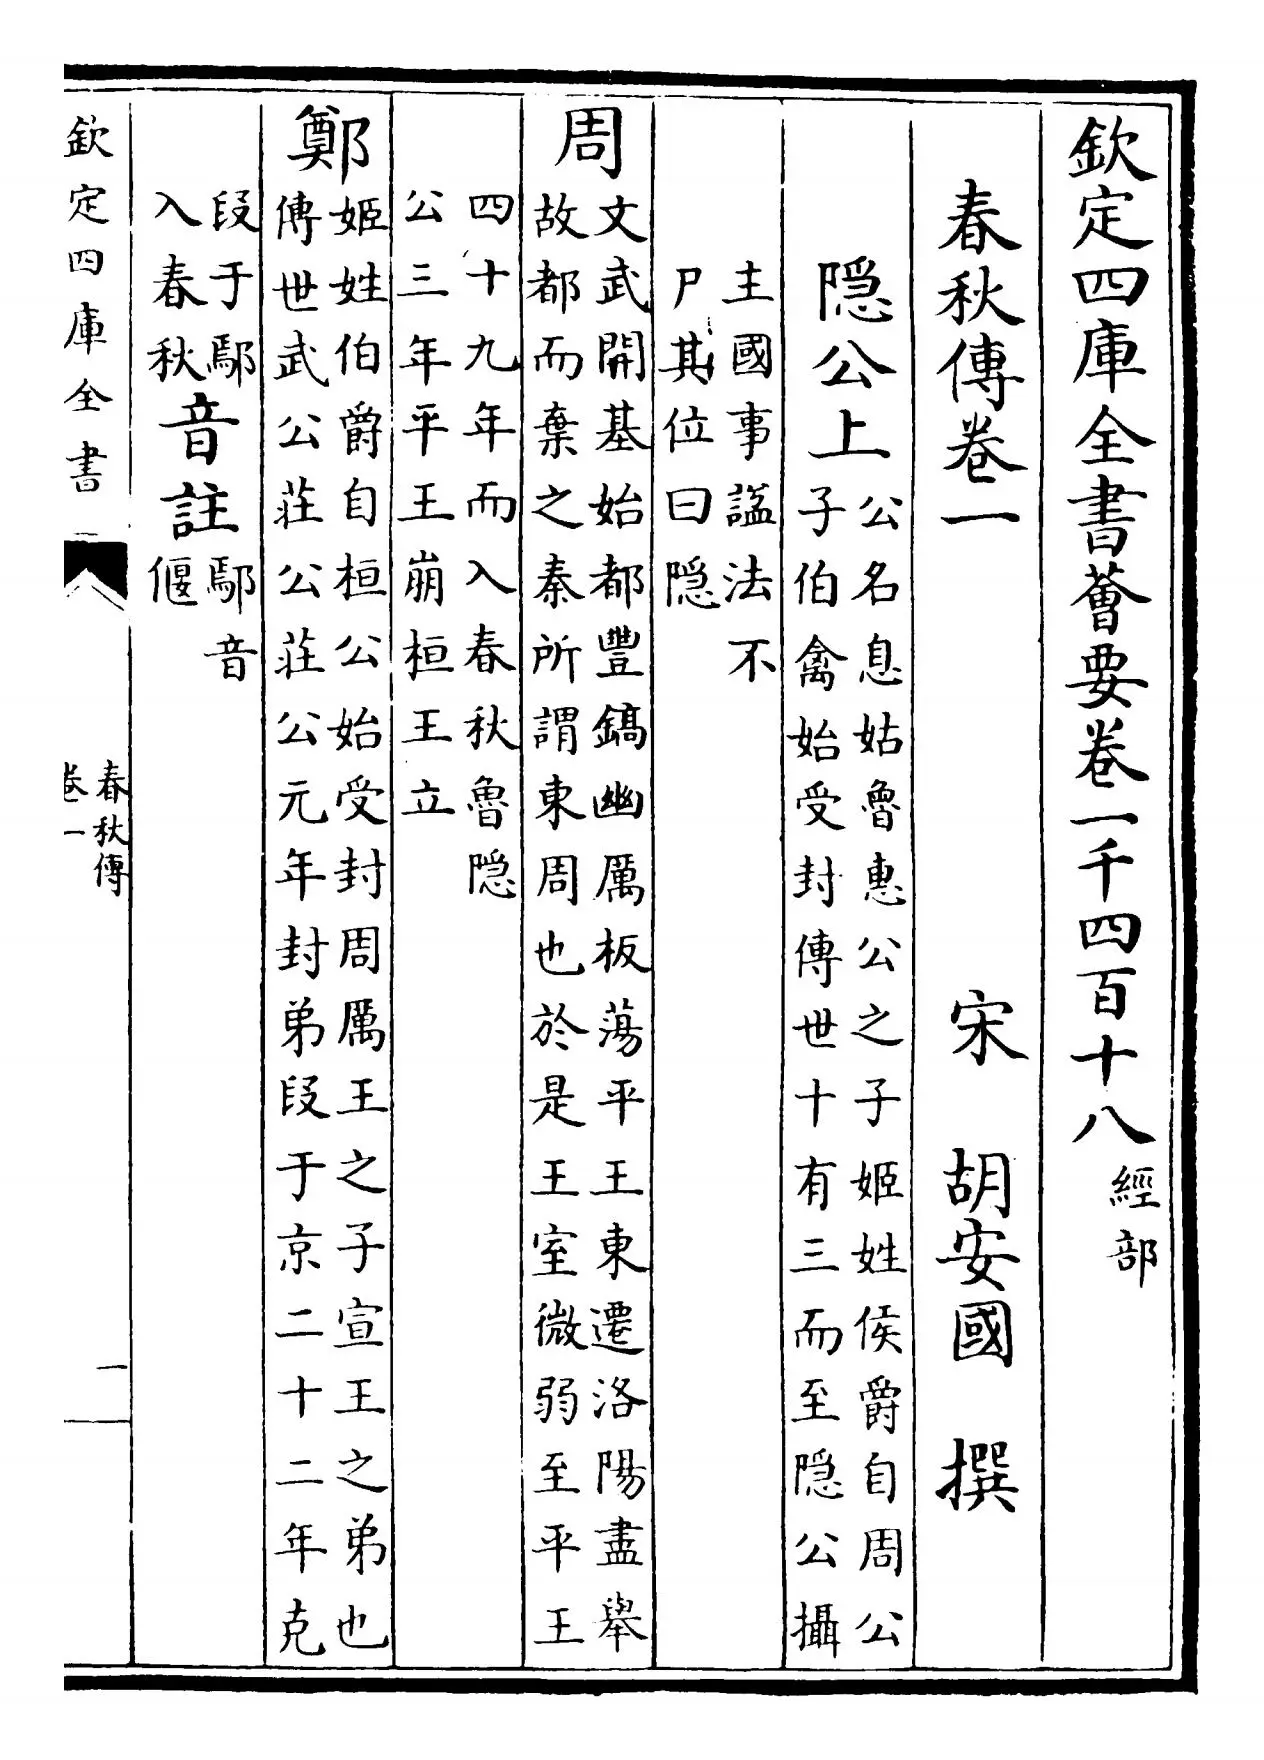 欽定四庫全書薈要卷一千四百十八經部
春秋傳卷一
宋 胡安國 撰
隠公上
公名息姑魯惠公之子姬姓侯爵自周公
子伯禽始受封傳世十有三而至隠公攝
主國事諡法不
尸其位曰隠
周
文武開基始都豐鎬幽厲板蕩平王東遷洛陽盡舉
故都而棄之秦所謂東周也於是王室微弱至平王
四十九年而入春秋魯隠
公三年平王崩桓王立
鄭
姬姓伯爵自桓公始受封周厲王之子宣王之弟也
傳世武公莊公莊公元年封弟段于京二十二年克
段于鄢
入春秋
音註
鄢音
偃
欽定四庫全書
春秋傳
卷一
一